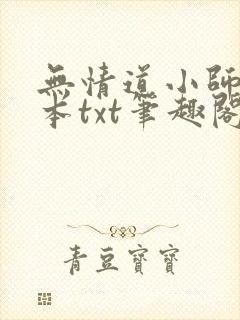 無情道小師
本txt筆趣閣
青豆寶寶